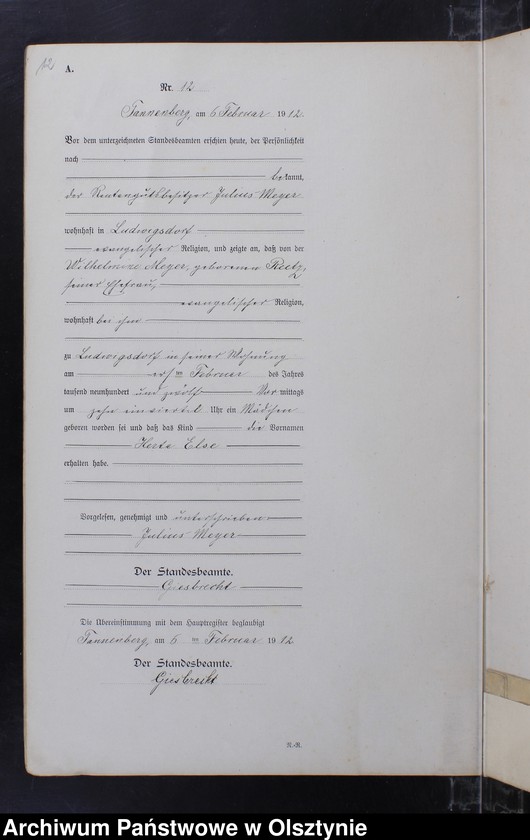 12
A.
Nr. 12
Tannenberg, am 6 Februar 1912.
Vor dem unterzeichneten Standesbeamten erschien heute, der Persönlichkeit
nach
bekannt,
der Rentengutsbesitzer Julius Meyer
wohnhaft in Ludwigsdorf
evangelischer Religion, und zeigte an, daß von der
Wilhelmine Meyer, geborenen Reetz,
seiner Ehefrau,
evangelischer Religion,
wohnhaft bei ihm
zu Ludwigsdorf in seiner Wohnung
am ersten Februar des Jahres
tausend neunhundert und zwölf Vormittags
um zehn einviertel Uhr ein Mädchen
geboren worden sei und daß das Kind die Vornamen
Herta Else
erhalten habe.
Vorgelesen, genehmigt und unterschrieben
Julius Meyer
Der Standesbeamte.
Giesbrecht
Die Übereinstimmung mit dem Hauptregister beglaubigt
Tannenberg, am 6 ten Februar 1912
Der Standesbeamte.
Giesbrecht
N.-R.
Archiwum Państwowe w Olsztynie